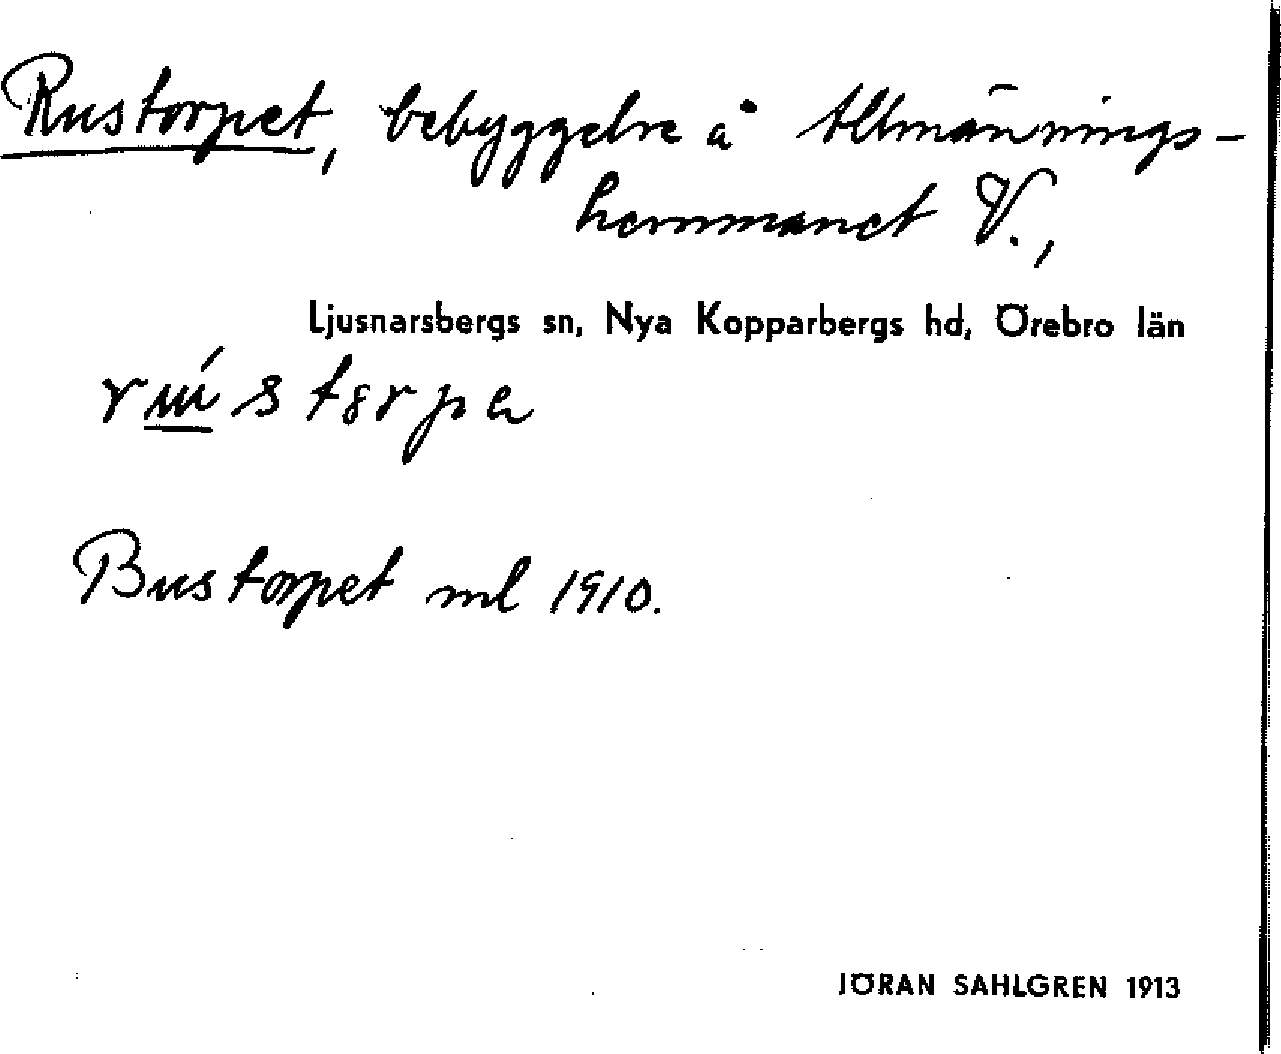 Rustorpet, bebyggelse å Allmännings-
hemmanet V.,
Ljusnarsbergs sn, Nya Kopparbergs hd, Örebro län
Bustorpet ml 1910.
JÖRAN SAHLGREN 1913